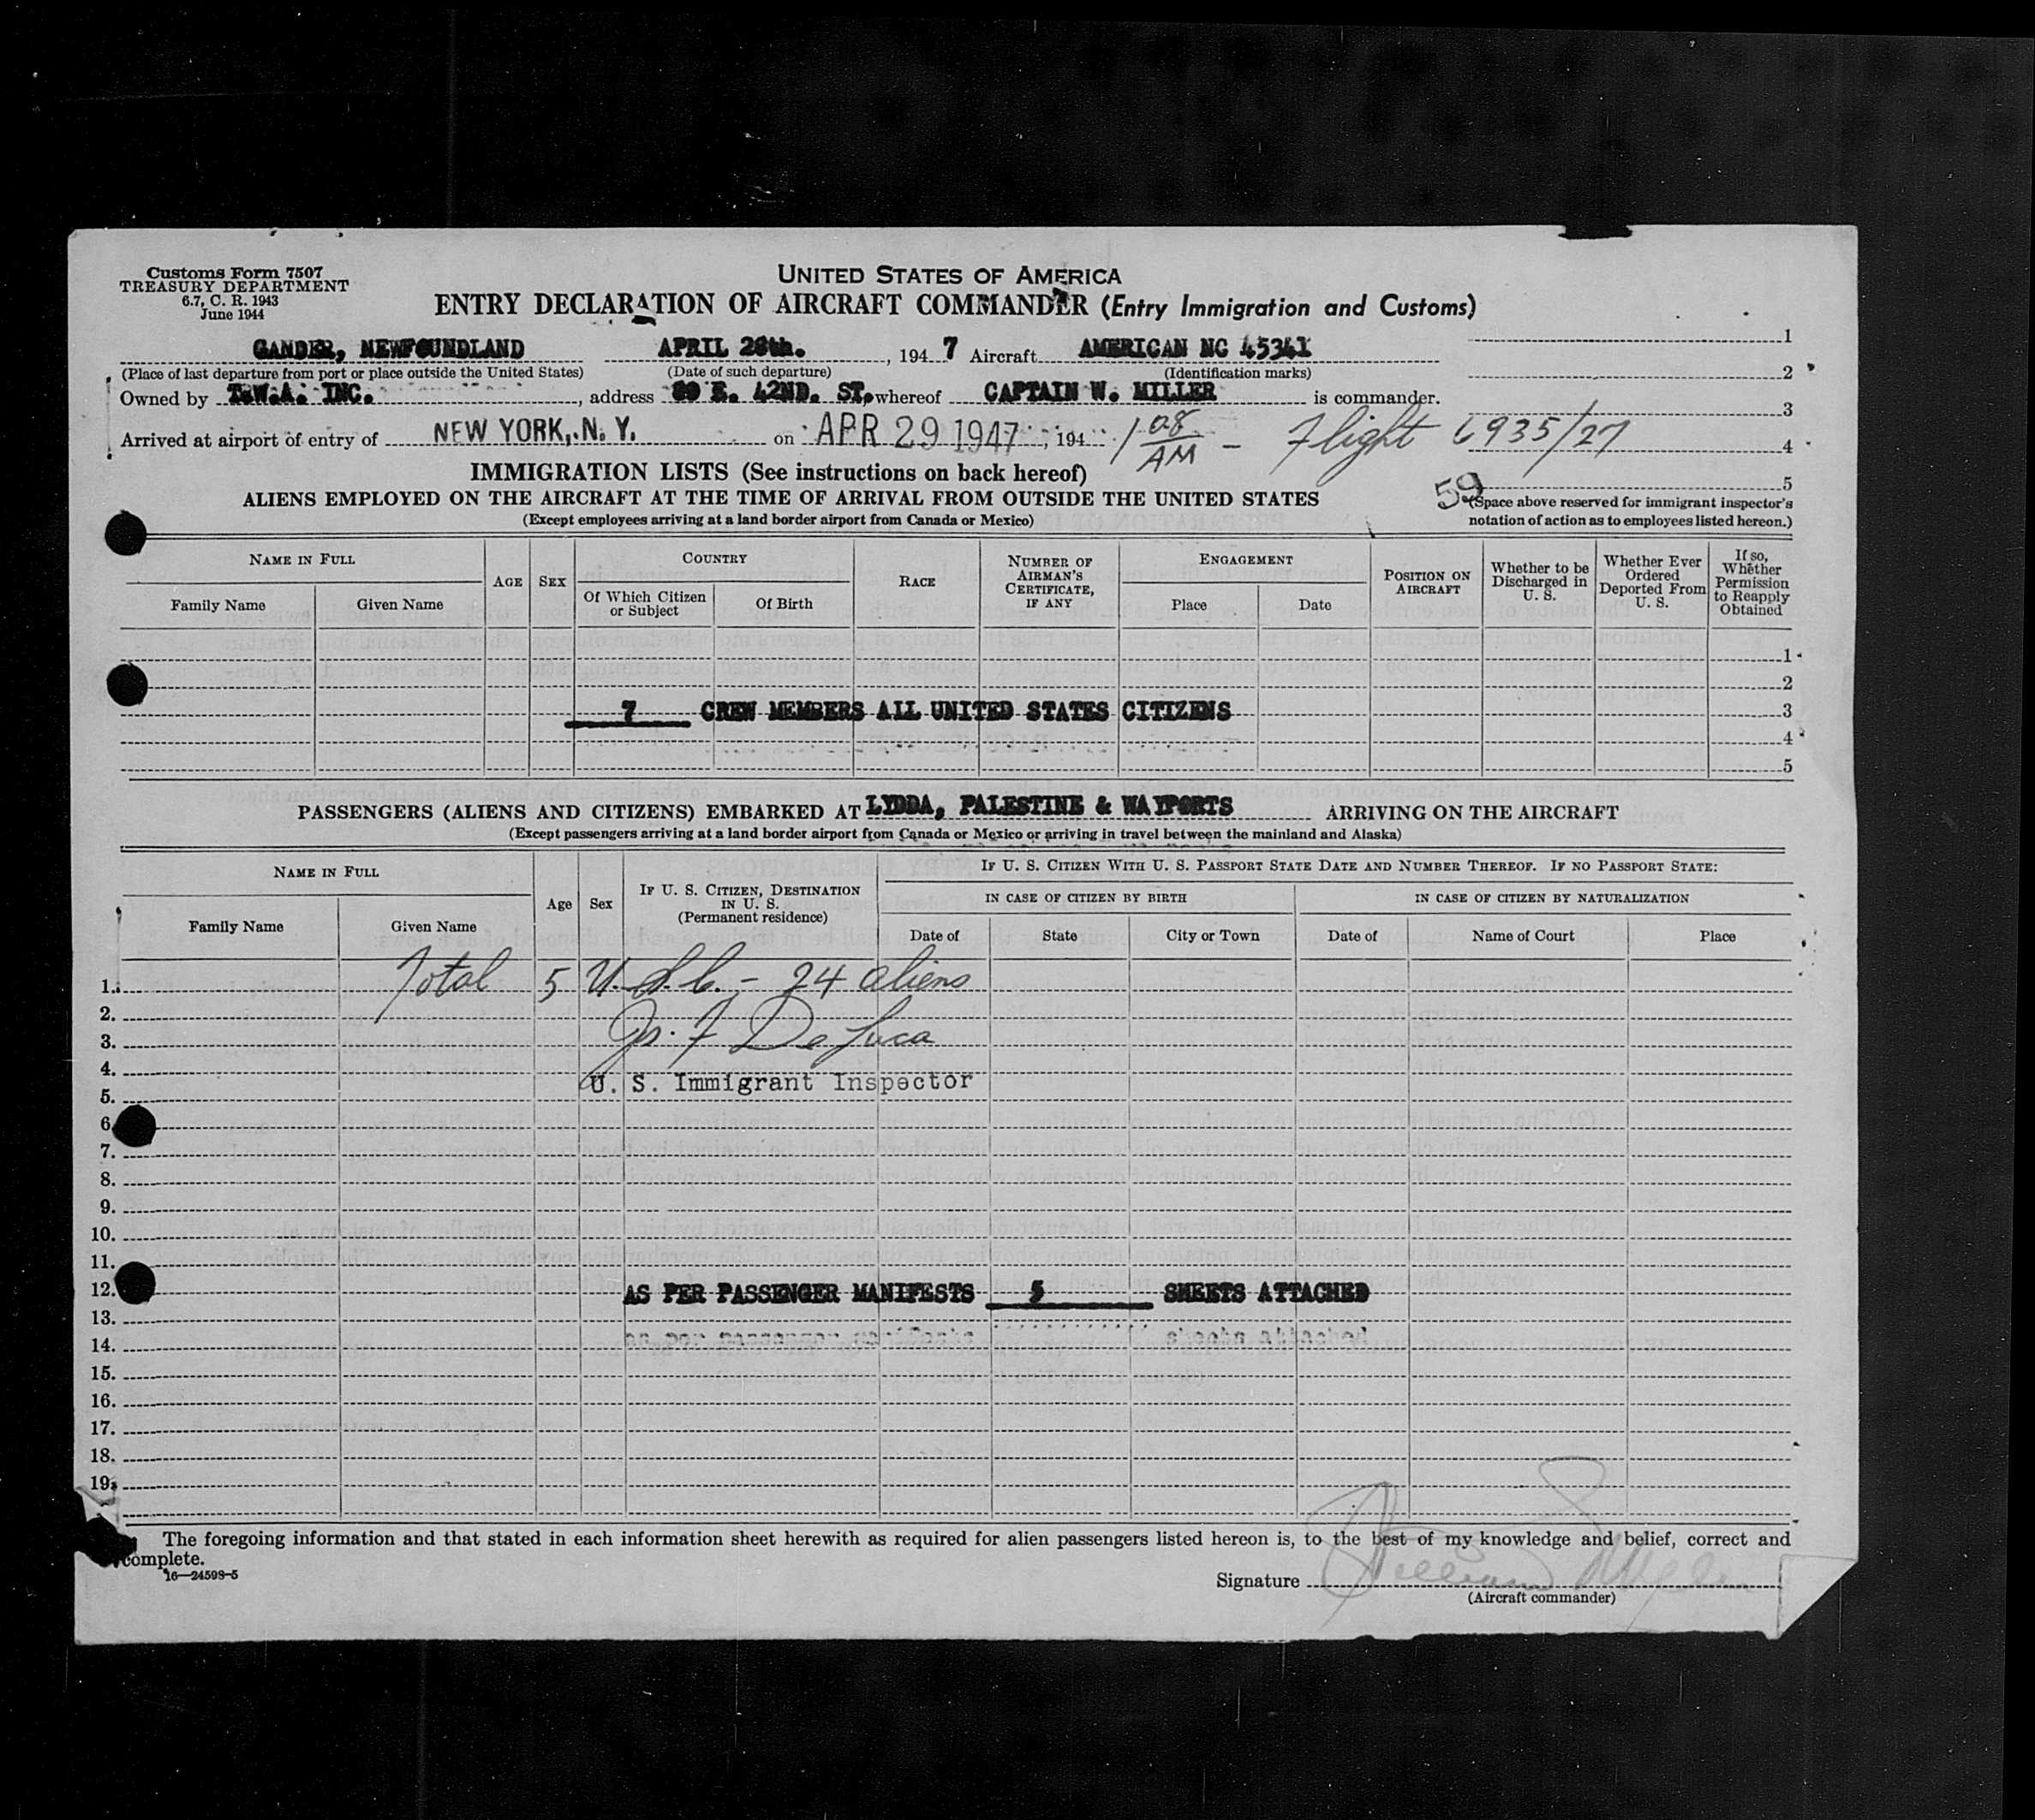 Customs Form 7507
TREASURY DEPARTMENT
6.7, C. R. 1943
June 1944
UNITED STATES OF AMERICA
ENTRY DECLARATION OF AIRCRAFT COMMANDER (Entry Immigration and Customs)
GANDER, NEWFOUNDLAND APRIL 28th. , 194 7 Aircraft AMERICAN NC 45341
(Place of last departure from port or place outside the United States) (Date of such departure) (Identification marks)
Owned by T.W.A. INC. , address E. 42ND. ST, whereof CAPTAIN W. MILLER is commander.
Arrived at airport of entry of NEW YORK, N. Y. on APR 29 1947 , 194 1 08 AM - Flight 6935/27
1
2
3
4
5
IMMIGRATION LISTS (See instructions on back hereof)
ALIENS EMPLOYED ON THE AIRCRAFT AT THE TIME OF ARRIVAL FROM OUTSIDE THE UNITED STATES
(Except employees arriving at a land border airport from Canada or Mexico)
59
(Space above reserved for immigrant inspector's
notation of action as to employees listed hereon.)
NAME IN FULL
Family Name Given Name
AGE SEX
COUNTRY
Of Which Citizen or Subject Of Birth
RACE
NUMBER OF AIRMAN'S CERTIFICATE, IF ANY
ENGAGEMENT
Place Date
POSITION ON AIRCRAFT
Whether to be Discharged in U. S.
Whether Ever Ordered Deported From U. S.
If so, Whether Permission to Reapply Obtained
1
2
7 CREW MEMBERS ALL UNITED STATES CITIZENS 3
4
5
PASSENGERS (ALIENS AND CITIZENS) EMBARKED AT LYDDA, PALESTINE & WAYPORTS ARRIVING ON THE AIRCRAFT
(Except passengers arriving at a land border airport from Canada or Mexico or arriving in travel between the mainland and Alaska)
NAME IN FULL
Family Name Given Name
Age Sex
IF U. S. CITIZEN, DESTINATION IN U. S. (Permanent residence)
IF U. S. CITIZEN WITH U. S. PASSPORT STATE DATE AND NUMBER THEREOF. IF NO PASSPORT STATE:
IN CASE OF CITIZEN BY BIRTH IN CASE OF CITIZEN BY NATURALIZATION
Date of State City or Town Date of Name of Court Place
1. Total 5 U.S.C. - 24 aliens
2.
3. Jos. F DeLuca
4.
U. S. Immigrant Inspector
5.
6.
7.
8.
9.
10.
11.
12. AS PER PASSENGER MANIFESTS 5 SHEETS ATTACHED
13.
14.
15.
16.
17.
18.
19.
The foregoing information and that stated in each information sheet herewith as required for alien passengers listed hereon is, to the best of my knowledge and belief, correct and
complete.
16—24598-5
Signature William Miller
(Aircraft commander)